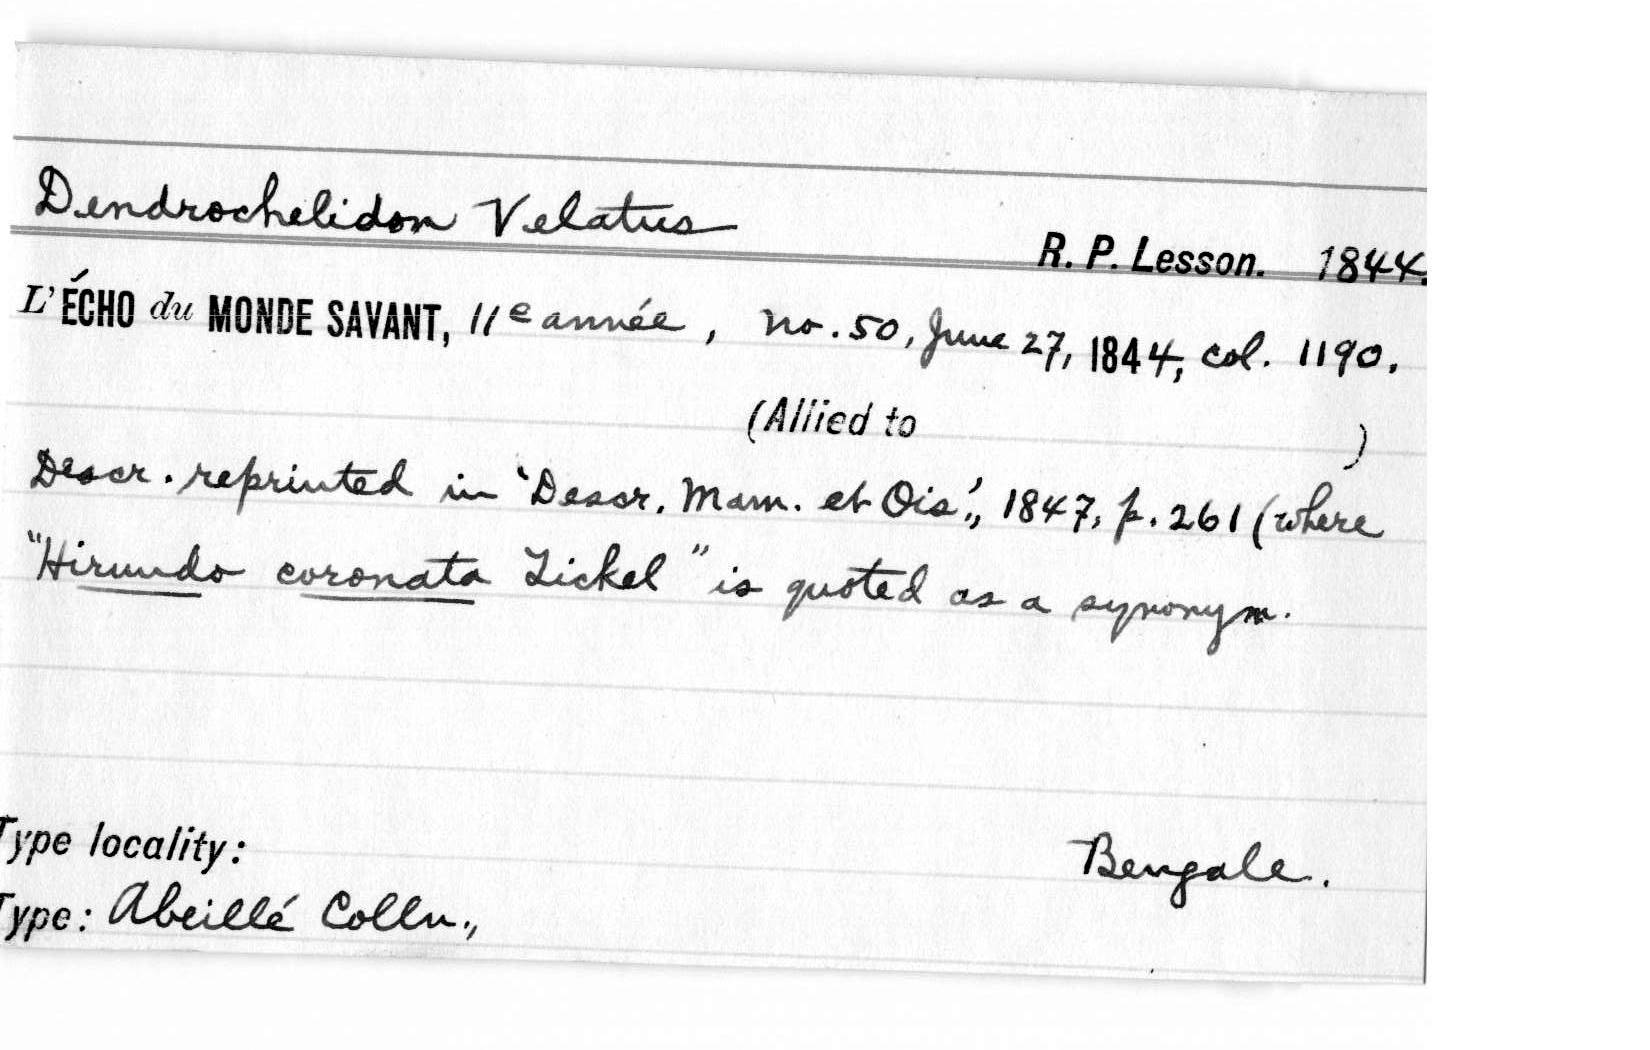 Dendrochelidon Velatus
R. P. Lesson. 1844.
L' ÉCHO du MONDE SAVANT, 11e année, no. 50, June 27, 1844, col. 1190.
(Allied to )
Descr. reprinted in 'Descr. Mam. et Ois.', 1847, p. 261 (where
"Hirundo coronata Tickel" is quoted as a synonym.
Type locality: Bengale.
Type: Abeillé Colln.,